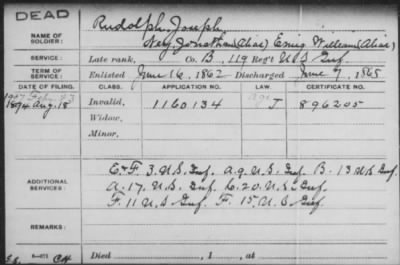 DEAD
Rudolph, Joseph
NAME OF SOLDIER:
Neu, Jonathan (Alias) Emig William (Alias)
SERVICE: Late rank, Co. B, 119 Reg't U S Inf.
TERM OF SERVICE: Enlisted June 16, 1862 Discharged June 7, 1865
DATE OF FILING. CLASS. APPLICATION NO. LAW. CERTIFICATE NO.
1894 Aug. 18 Invalid, 1160134 J 896205
Widow,
Minor,
ADDITIONAL SERVICES:
E & F. 3. U.S. Inf. A. 9. U.S. Inf. B. 13 U.S. Inf.
A. 17. U.S. Inf. C. 20. U.S. Inf.
F. 11 U.S. Inf. F. 15. U.S Inf
REMARKS:
Died , 1 , at